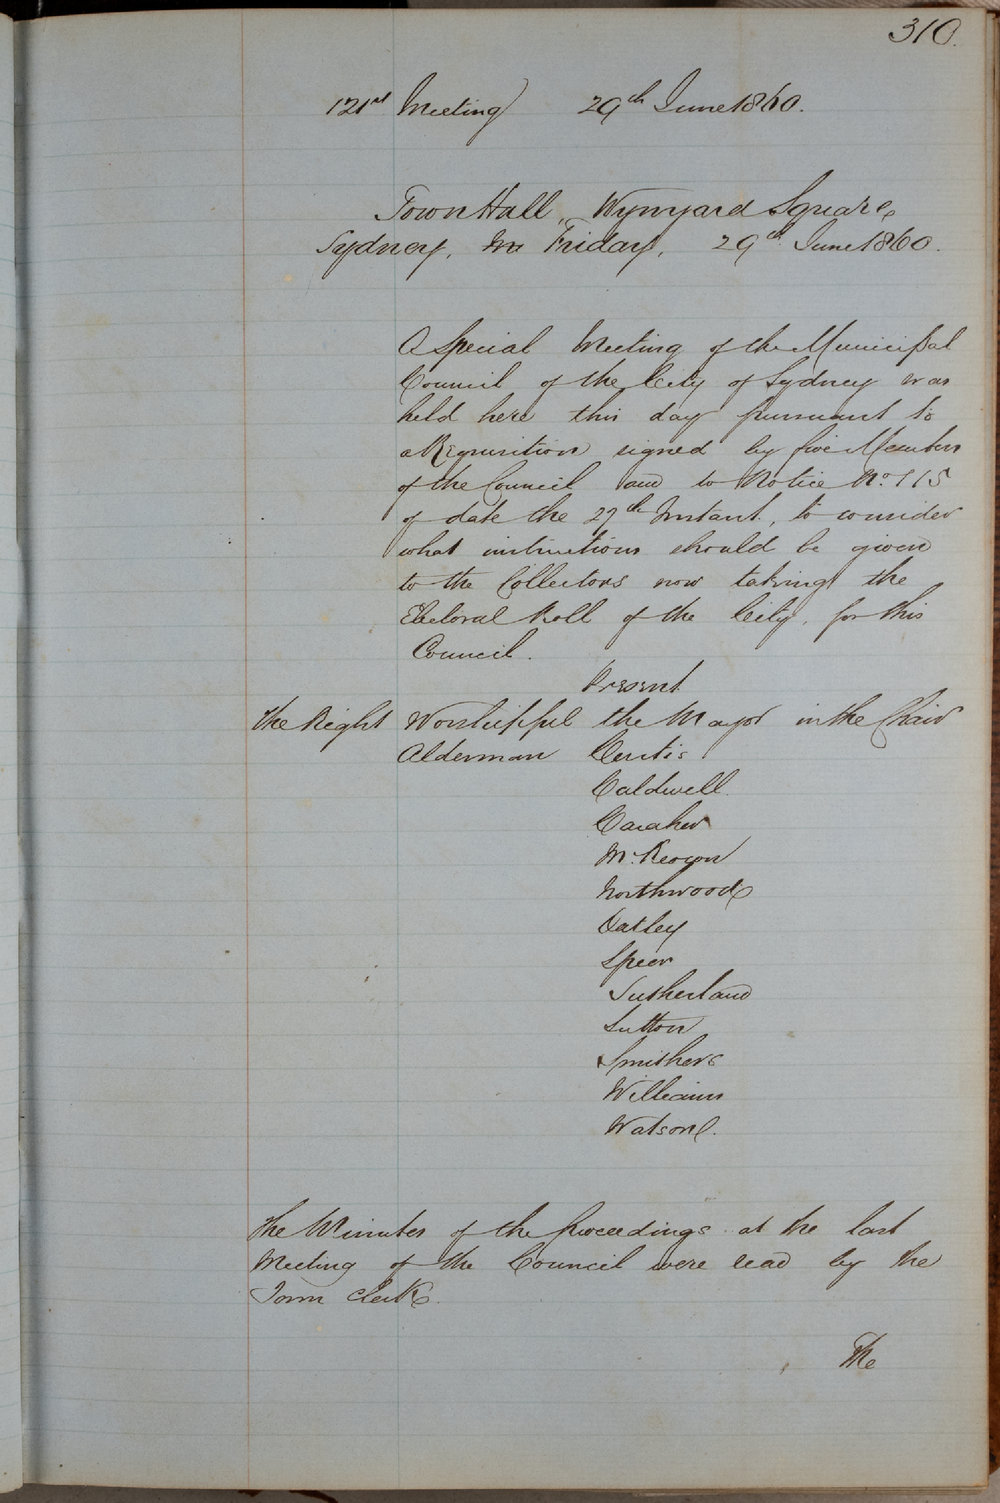 310.
121st Meeting 29th June 1860.
Town Hall, Wynyard Square,
Sydney, on Friday, 29th June 1860.
A Special Meeting of the Municipal
Council of the City of Sydney was
held here this day pursuant to
a Requisition signed by five Members
of the Council and to Notice No. 115
of date the 27th Instant, to consider
what instructions should be given
to the Collectors now taking the
Electoral Roll of the City, for this
Council.
Present
The Right Worshipful the Mayor in the Chair
Alderman Curtis
Caldwell
Caraher
McKeown
Northwood
Oatley
Speer
Sutherland
Sutton
Smithers
Williams
Watson.
The Minutes of the proceedings at the last
Meeting of the Council were read by the
Town Clerk.
The